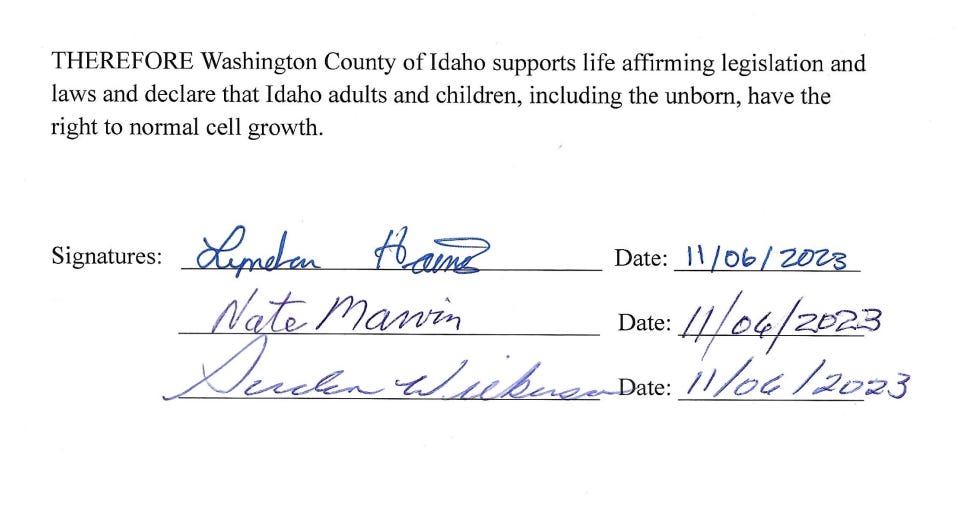 THEREFORE Washington County of Idaho supports life affirming legislation and
laws and declare that Idaho adults and children, including the unborn, have the
right to normal cell growth.
Signatures: Lyndon Haines Date: 11/06/2023
Nate Marvin Date: 11/06/2023
Date: 11/06/2023